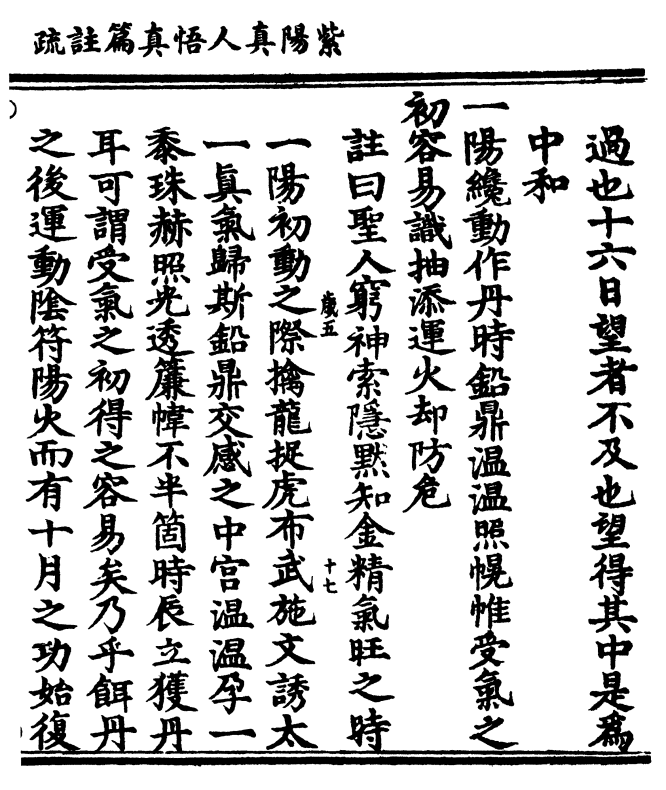 紫陽真人悟真篇註疏
過也十六日望者不及也望得其中是為
中和
一陽纔動作丹時鉛鼎温温照幌帷受氣之
初容易識抽添運火却防危
註曰聖人窮神索隱黙知金精氣旺之時
歲五
十七
一陽初動之際擒龍捉虎布武施文誘太
一真氣歸斯鉛鼎交感之中宮温温孕一
黍珠赫照光透簾幃不半箇時辰立獲丹
耳可謂受氣之初得之容易矣乃乎餌丹
之後運動陰符陽火而有十月之功始復